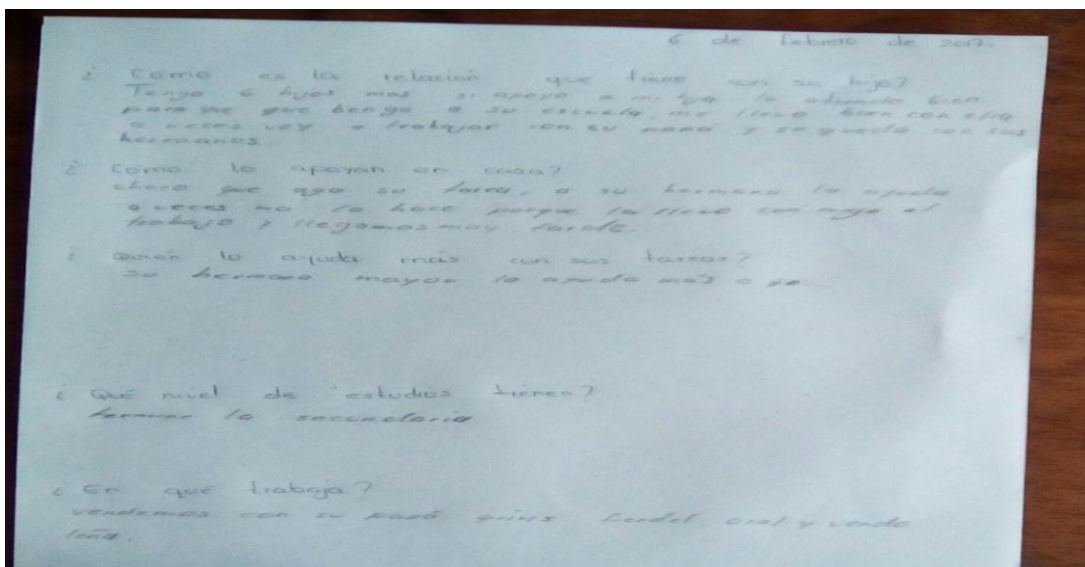 6 de febrero de 2017.
¿ Cómo es la relación que tiene con su hijo?
Tengo 6 hijos mas si apoyo a mi hija la atiendo bien
para que que benga a su escuela, me llevo bien con ella
a veces voy a trabajar con su papá y se queda con sus
hermanos.
¿ Cómo lo apoyan en casa?
checo que aga su tarea, o su hermano la ayuda
a veces no la hace porque la llevo con migo al
trabajo y llegamos muy tarde.
¿ Quién lo ayuda más con sus tareas?
su hermano mayor la ayuda más o yo.
¿ Qué nivel de estudios tienen?
termine la secundaria
¿ En qué trabaja?
vendemos con su papá y vendo
leña.